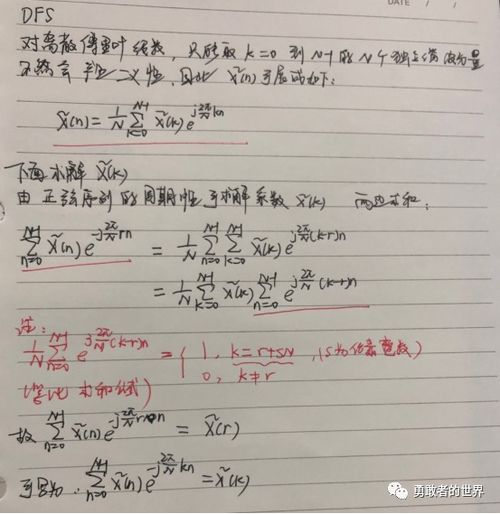 DATE / /
DFS
对离散傅里叶级数，只能取 k=0 到 N-1 的 N 个独立谐波分量
不然会产生二义性，因此 x̃(n) 可展成如下：
x̃(n) = 1/N ∑_{k=0}^{N-1} x̃(k) e^{j 2π/N kn}
下面求解 x̃(k)
由正弦序列的周期性可求解系数 x̃(k) 两边求和：
∑_{n=0}^{N-1} x̃(n) e^{-j 2π/N rn} = 1/N ∑_{n=0}^{N-1} ∑_{k=0}^{N-1} x̃(k) e^{j 2π/N (k-r)n}
= 1/N ∑_{k=0}^{N-1} x̃(k) ∑_{n=0}^{N-1} e^{j 2π/N (k-r)n}
注：
1/N ∑_{n=0}^{N-1} e^{j 2π/N (k-r)n} = { 1, k=r+sN, (s为任意整数)
0, k≠r
(等比求和公式)
故 ∑_{n=0}^{N-1} x̃(n) e^{-j 2π/N rn} = x̃(r)
可写为: ∑_{n=0}^{N-1} x̃(n) e^{-j 2π/N kn} = x̃(k)
勇敢者的世界